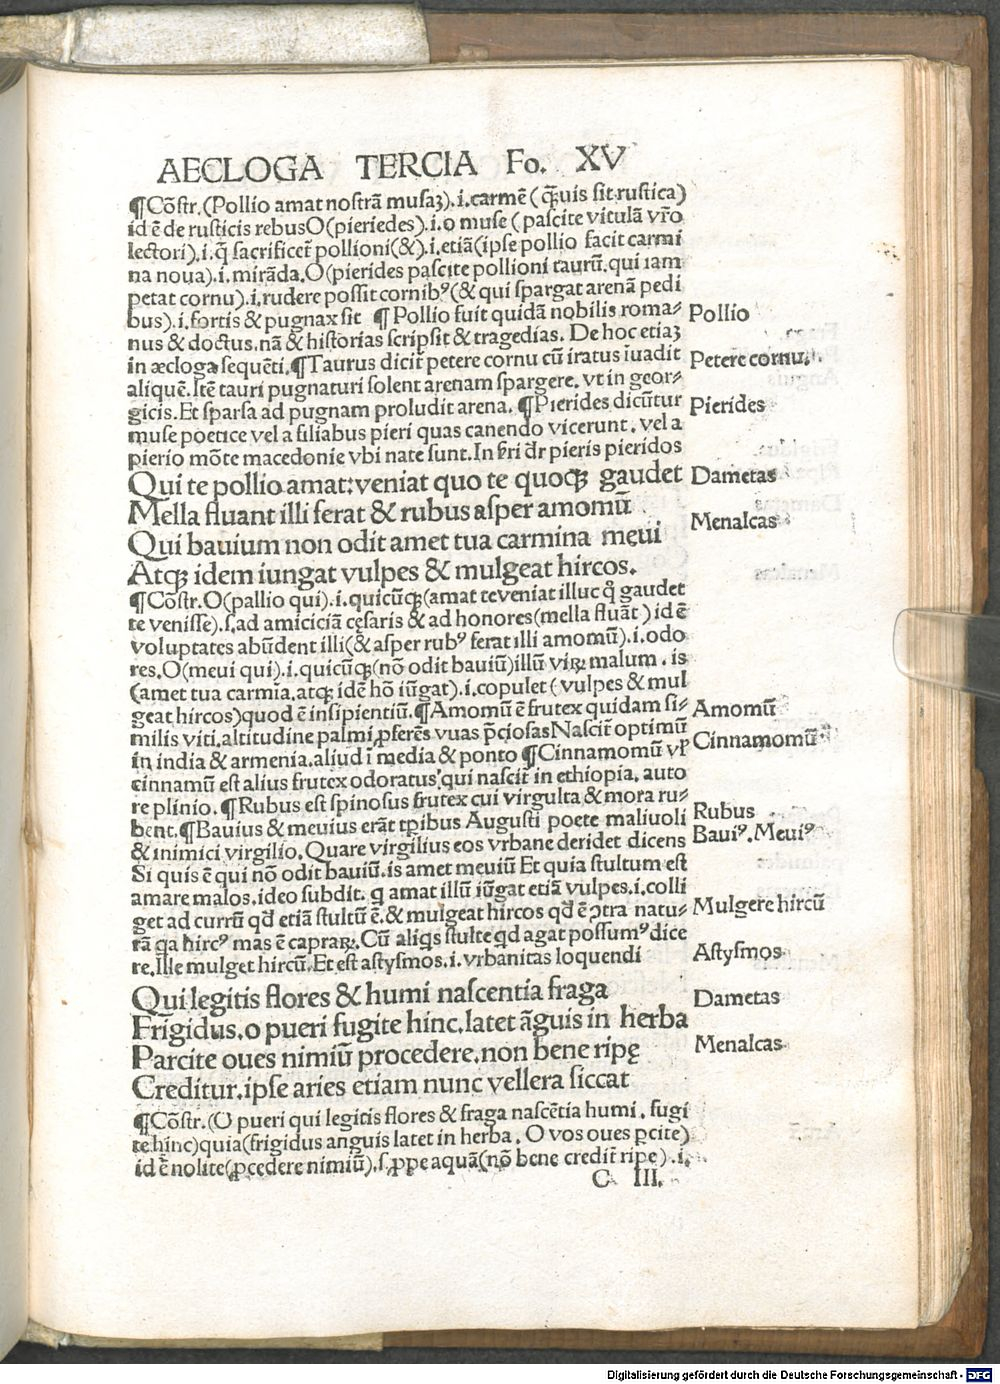 AECLOGA TERCIA Fo. XV
¶Cõstr.(Pollio amat nostrã musaꝫ).i.carmẽ(q̃uis sit rustica)
id ẽ de rusticis rebusO(pieriedes).i.o muse(pascite vitulã vr̃o
lectori).i.q̃ sacrificet̃ pollioni(&).i.etiã(ipse pollio facit carmi
na noua).i.mirãda.O(pierides pascite pollioni taurũ.qui iam
petat cornu).i.rudere possit cornibꝰ(& qui spargat arenã pedi
bus).i.fortis & pugnax sit ¶Pollio fuit quidã nobilis roma⸗
nus & doctus.nã & historias scripsit & tragedias. De hoc etiaꝫ
in æcloga sequẽti.¶Taurus dicit̃ petere cornu cũ iratus iuadit
aliquẽ.Itẽ tauri pugnaturi solent arenam spargere.vt in geor⸗
gicis.Et sparsa ad pugnam proludit arena.¶Pierides dicũtur
muse poetice vel a filiabus pieri quas canendo vicerunt.vel a
pierio mõte macedonie vbi nate sunt.In pieris pieridos
Pollio
Petere cornu.
Pierides
Qui te pollio amat:veniat quo te quoqꝫ gaudet
Mella fluant illi ferat & rubus asper amomũ
Qui bauium non odit amet tua carmina meui
Atqꝫ idem iungat vulpes & mulgeat hircos.
Dametas
Menalcas
¶Cõstr.O(pallio qui).i.quicũqꝫ(amat te veniat illuc q̊ gaudet
te venisse).s.ad amiciciã cęsaris & ad honores(mella fluãt)id ẽ
voluptates abũdent illi(& asper rubꝰ ferat illi amomũ).i.odo
res.O(meui qui).i.quicũqꝫ(nõ odit bauiũ)illũ virꝝ malum.is
(amet tua carmĩa.atqꝫ idẽ hõ iũgat).i.copulet(vulpes & mul
geat hircos)quod ẽ insipientiũ.¶Amomũ ẽ frutex quidam si⸗
milis viti.altitudine palmi ꝓferẽs vuas p̃ciosas Nascit̃ optimũ
in india & armenia.aliud ĩ media & ponto ¶Cinnamomũ vl̃
cinnamũ est alius frutex odoratus qui nascit̃ in ethiopia.auto
re plinio.¶Rubus est spinosus frutex cui virgulta & mora ru⸗
bent.¶Bauius & meuius erãt tp̃ibus Augusti poete maliuoli
& inimici virgilio.Quare virgilius eos vrbane deridet dicens
Si quis ẽ qui nõ odit bauiũ.is amet meuiũ Et quia stultum est
amare malos.ideo subdit. q amat illũ iũgat etiã vulpes.i.colli
get ad currũ qd̃ etiã stultũ ẽ.& mulgeat hircos qd̃ ẽ ↄtra natu⸗
rã qa hircꝰ mas ẽ capraꝝ.Cũ aliqͥs stulte qd agat possumꝰ dice
re.Ille mulget hircũ.Et est astysmos.i.vrbanitas loquendi
Amomũ
Cinnamomũ
Rubus
Bauiꝰ.Meuiꝰ
Mulgere hircũ
Astysmos
Qui legitis flores & humi nascentia fraga
Frigidus.o pueri fugite hinc.latet ãguis in herba
Parcite oues nimiũ procedere.non bene ripę
Creditur.ipse aries etiam nunc vellera siccat
Dametas
Menalcas
¶Cõstr.(O pueri qui legitis flores & fraga nascẽtia humi.fugi
te hinc)quia(frigidus anguis latet in herba.O vos oues ꝑcite)
id ẽ nolite(ꝓcedere nimiũ).s.ꝓpe aquã(nõ bene credit̃ ripe).i.
C III.
Digitalisierung gefördert durch die Deutsche Forschungsgemeinschaft - DFG